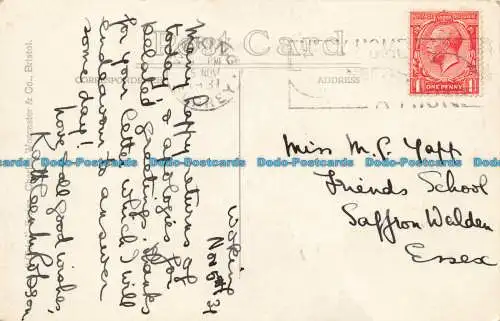 Post Card
CORRESPONDENCE
ADDRESS
Woking
Nov 6th 31
Many Happy returns of
today! & apologies for
belated greetings. Thanks
for your letter which I will
endeavour to answer
some day!
Love & all good wishes,
Miss M. C. Yapp
Friends School
Saffron Walden
Essex
NOV
ONE PENNY
& Co., Bristol.
Dodo-Postcards Dodo-Postcards Dodo-Postcards Dodo-Postcards